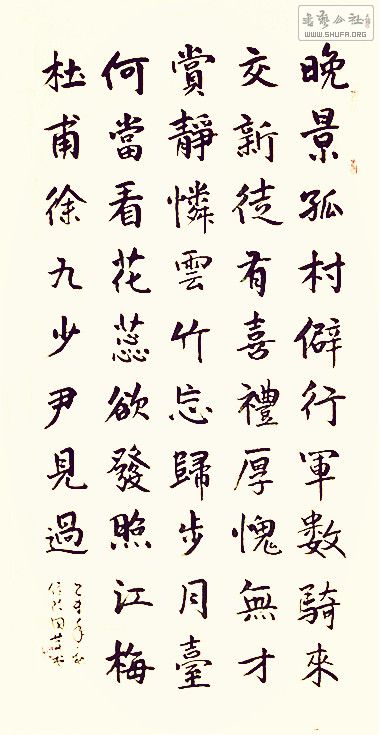 晚景孤村僻行軍数騎來
交新徒有喜禮厚愧無才
賞靜憐雲竹忘歸步月臺
何當看花蕊欲發照江梅
杜甫徐九少尹見過
公社
WWW.SHUFA.ORG